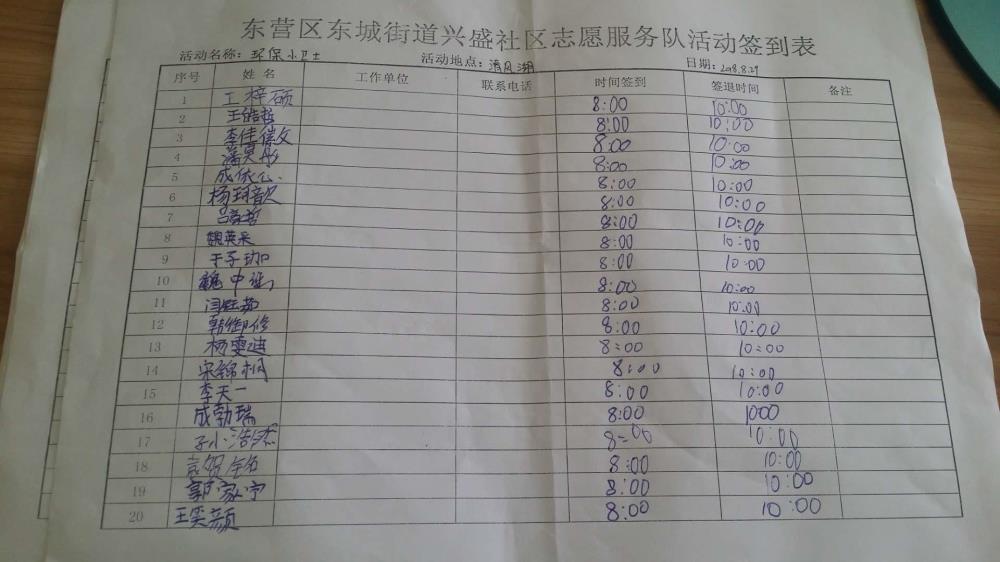 东营区东城街道兴盛社区志愿服务队活动签到表
活动名称：环保小卫士 活动地点：清风湖 日期：2018.8.29
序号 姓名 工作单位 联系电话 时间签到 签退时间 备注
1 王梓硕 8:00 10:00
2 王皓哲 8:00 10:00
3 李佳偌文 8:00 10:00
4 潘昊彤 8:00 10:00
5 成依心 8:00 10:00
6 杨珂歆 8:00 10:00
7 8:00 10:00
8 魏英采 8:00 10:00
9 于子珈 8:00 10:00
10 魏中 8:00 10:00
11 闫钰茹 8:00 10:00
12 韩御修 8:00 10:00
13 杨雯迪 8:00 10:00
14 宋锦桐 8:00 10:00
15 李天一 8:00 10:00
16 成勃瑞 8:00 1000
17 8:00 10:00
18 袁 8:00 10:00
19 郭家宁 8:00 10:00
20 王奕颜 8:00 10:00